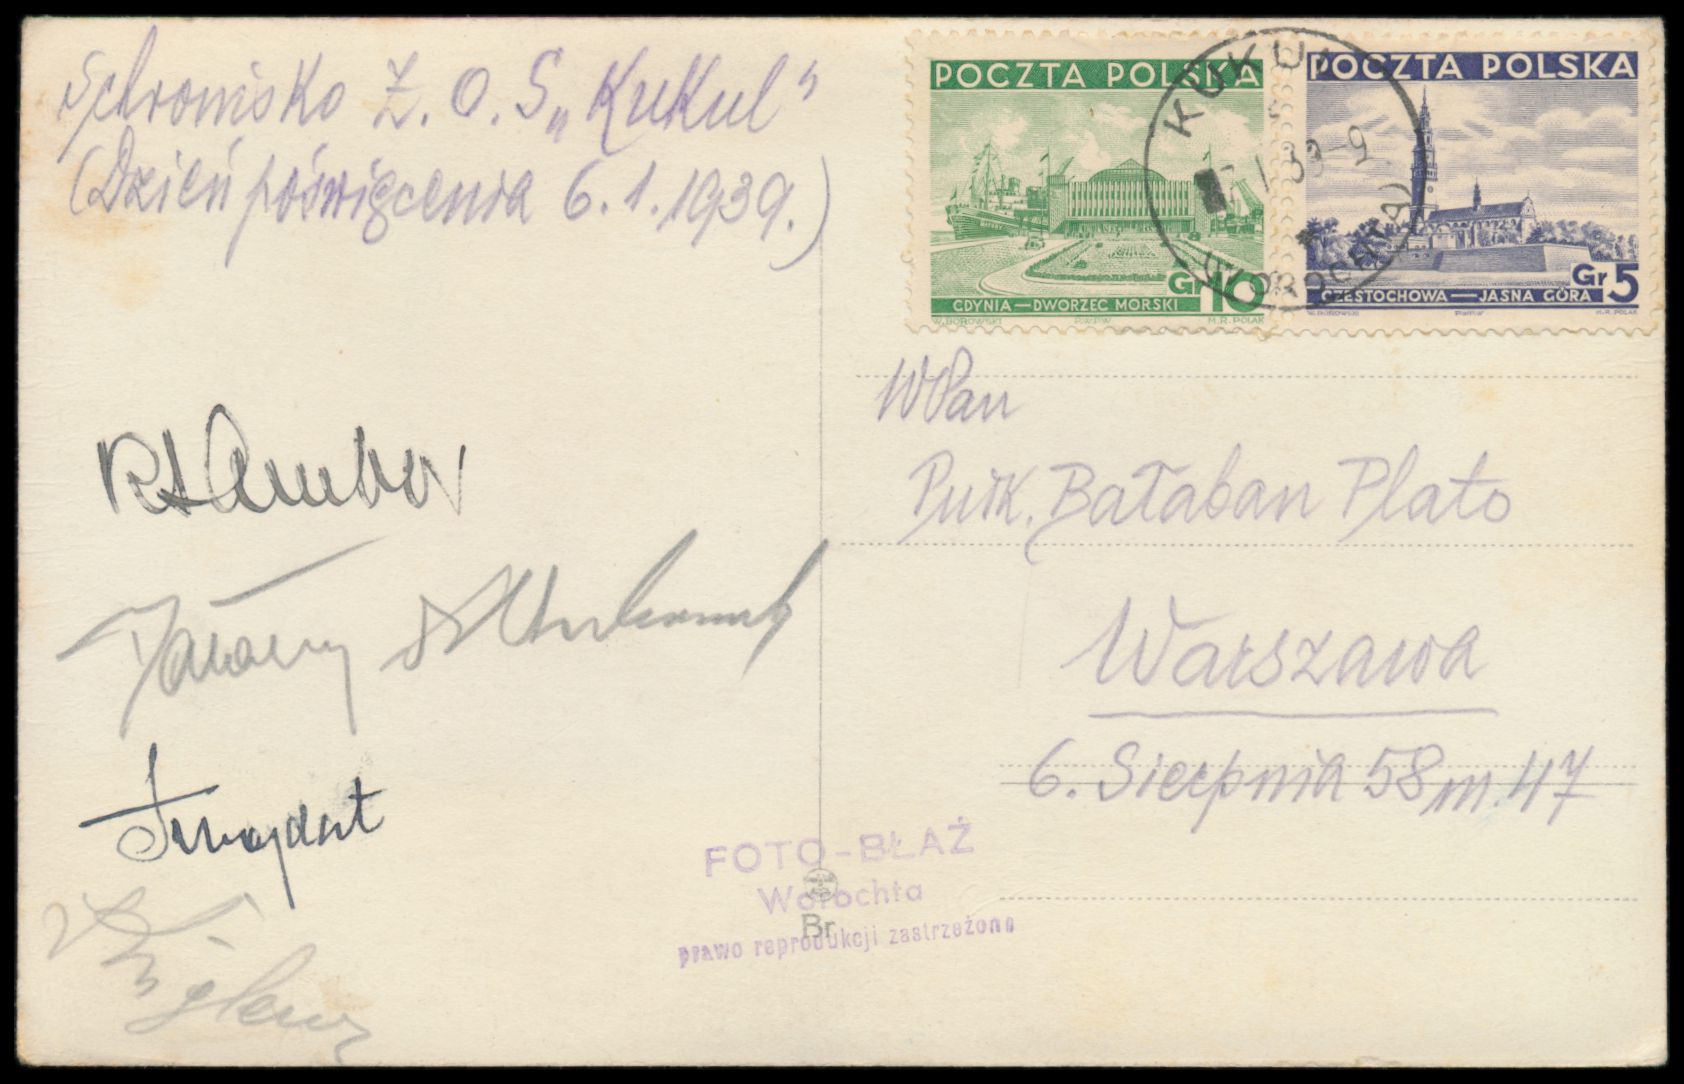 Schronisko Z. O. S „Kukul"
(Dzień poświęcenia 6. 1. 1939.)
POCZTA POLSKA
Gr 10
GDYNIA—DWORZEC MORSKI
W. BOROWSKI P.W.P.W M.R. POLAK
POCZTA POLSKA
Gr 5
CZĘSTOCHOWA—JASNA GÓRA
W. BOROWSKI P.W.P.W M.R. POLAK
KUKUL
I 39-9
(WOROCHTA)
WPan
Pułk. Bałaban Plato
Warszawa
6. Sierpnia 58 m. 47
FOTO-BŁAŻ
Worochta
Br
prawo reprodukcji zastrzeżone